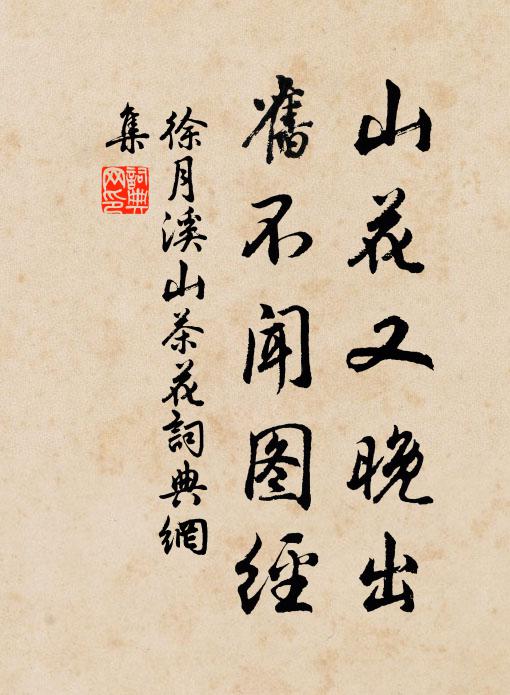 山花又晚出
舊不闻图經
徐月溪山茶花詞典網
集
詞典
网印